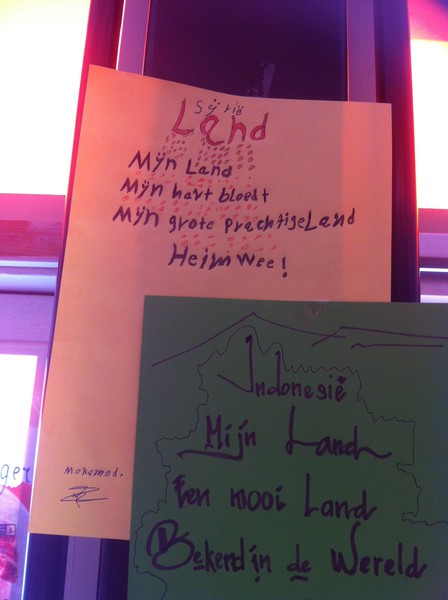 Syrië
Land
Mijn Land
Mijn hart bloedt
Mijn grote prachtige Land
Heimwee!
Mohamed.
Indonesië
Mijn Land
Een mooi Land
Bekend in de Wereld
ger